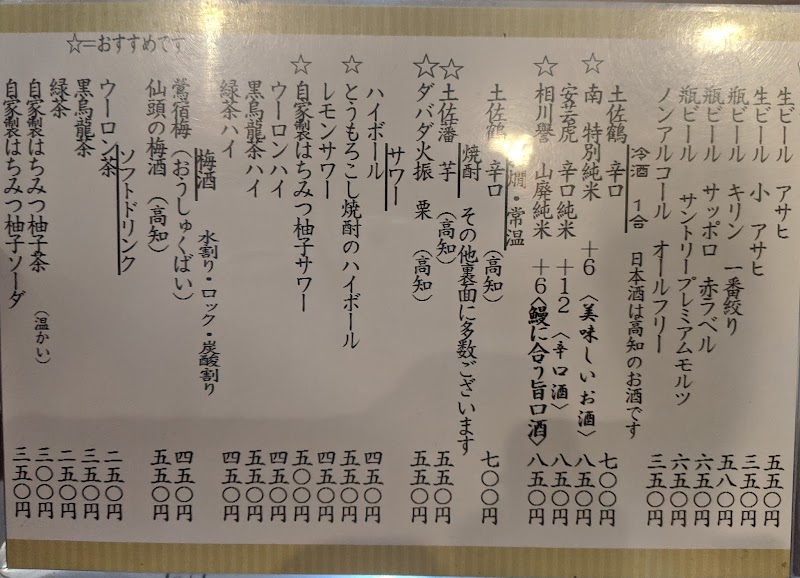 生ビール アサヒ 五五〇円
生ビール 小 アサヒ 三五〇円
瓶ビール キリン 一番絞り 五八〇円
瓶ビール サッポロ 赤ラベル 六五〇円
瓶ビール サントリープレミアムモルツ 六五〇円
ノンアルコール オールフリー 三五〇円
冷酒 1合 日本酒は高知のお酒です
土佐鶴 辛口 七〇〇円
☆南 特別純米 +6 〈美味しいお酒〉 八五〇円
安芸虎 辛口純米 +12 〈辛口酒〉 八五〇円
☆相川誉 山廃純米 +6 〈鰻に合う旨口酒〉 八五〇円
燗・常温
土佐鶴 辛口 (高知) 七〇〇円
焼酎 その他裏面に多数ございます
☆土佐藩 芋 (高知) 五五〇円
☆ダバダ火振 栗 (高知) 五五〇円
サワー
ハイボール 四五〇円
☆とうもろこし焼酎のハイボール 五五〇円
レモンサワー 四五〇円
☆自家製はちみつ柚子サワー 五〇〇円
ウーロンハイ 四五〇円
黒烏龍茶ハイ 五五〇円
緑茶ハイ 四五〇円
梅酒 水割り・ロック・炭酸割り
鶯宿梅(おうしゅくばい) 四五〇円
仙頭の梅酒 (高知) 五五〇円
ソフトドリンク
ウーロン茶 二五〇円
黒烏龍茶 三五〇円
緑茶 二五〇円
自家製はちみつ柚子茶 (温かい) 三〇〇円
自家製はちみつ柚子ソーダ 三五〇円
☆=おすすめです